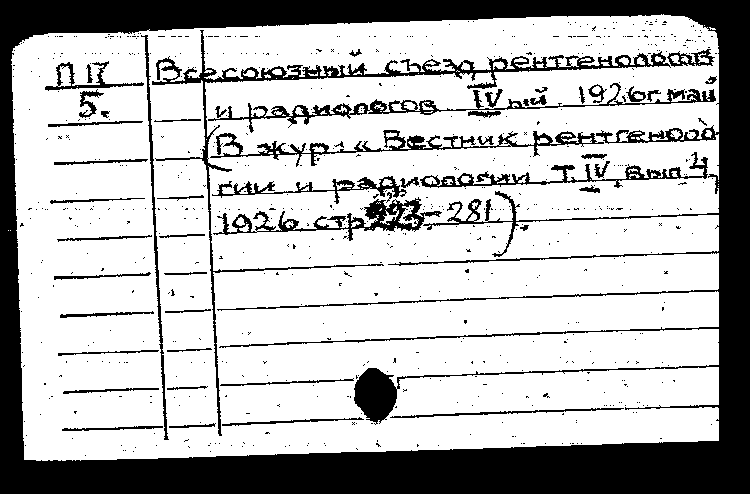 П 17 Всесоюзный съезд рентгенологов
5. и радиологов IV ый 1926 г. май
(В жур. „ Вестник рентгеноло-
гии и радиологии Т. IV. Вып. 4,
1926 стр. 223-281).